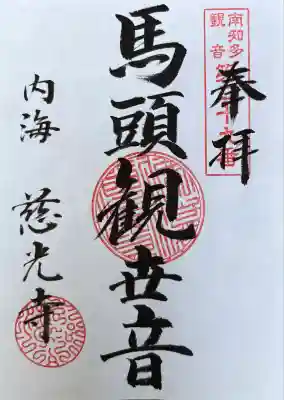 奉拝
南知多
観音
馬頭観世音
内海 慈光寺